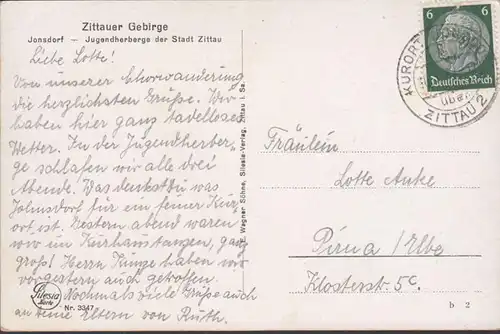 Zittauer Gebirge
Jonsdorf – Jugendherberge der Stadt Zittau
Liebe Lotte!
Von unserer Chorwanderung
die herzlichsten Grüße. Wir
haben hier ganz tadelloses
Wetter. In der Jugendherber-
ge schlafen wir alle drei
Abende. Was denkst du was
Johnsdorf für ein feiner Kur-
ort ist. Gestern abend waren
wir im Kurhaus tanzen, ganz
groß! Herrn Kunze haben wir
vorgestern auch getroffen.
Nochmals viele Grüße auch
an Eltern von Ruth.
Silesia
Karte
Nr. 3347
Wagner Söhne, Silesia-Verlag, Zittau i. Sa.
6 6
Deutsches Reich
KURORT
über
ZITTAU 2
Fräulein
Lotte Anke
Pirna / Elbe
Klosterstr. 5c.
b 2